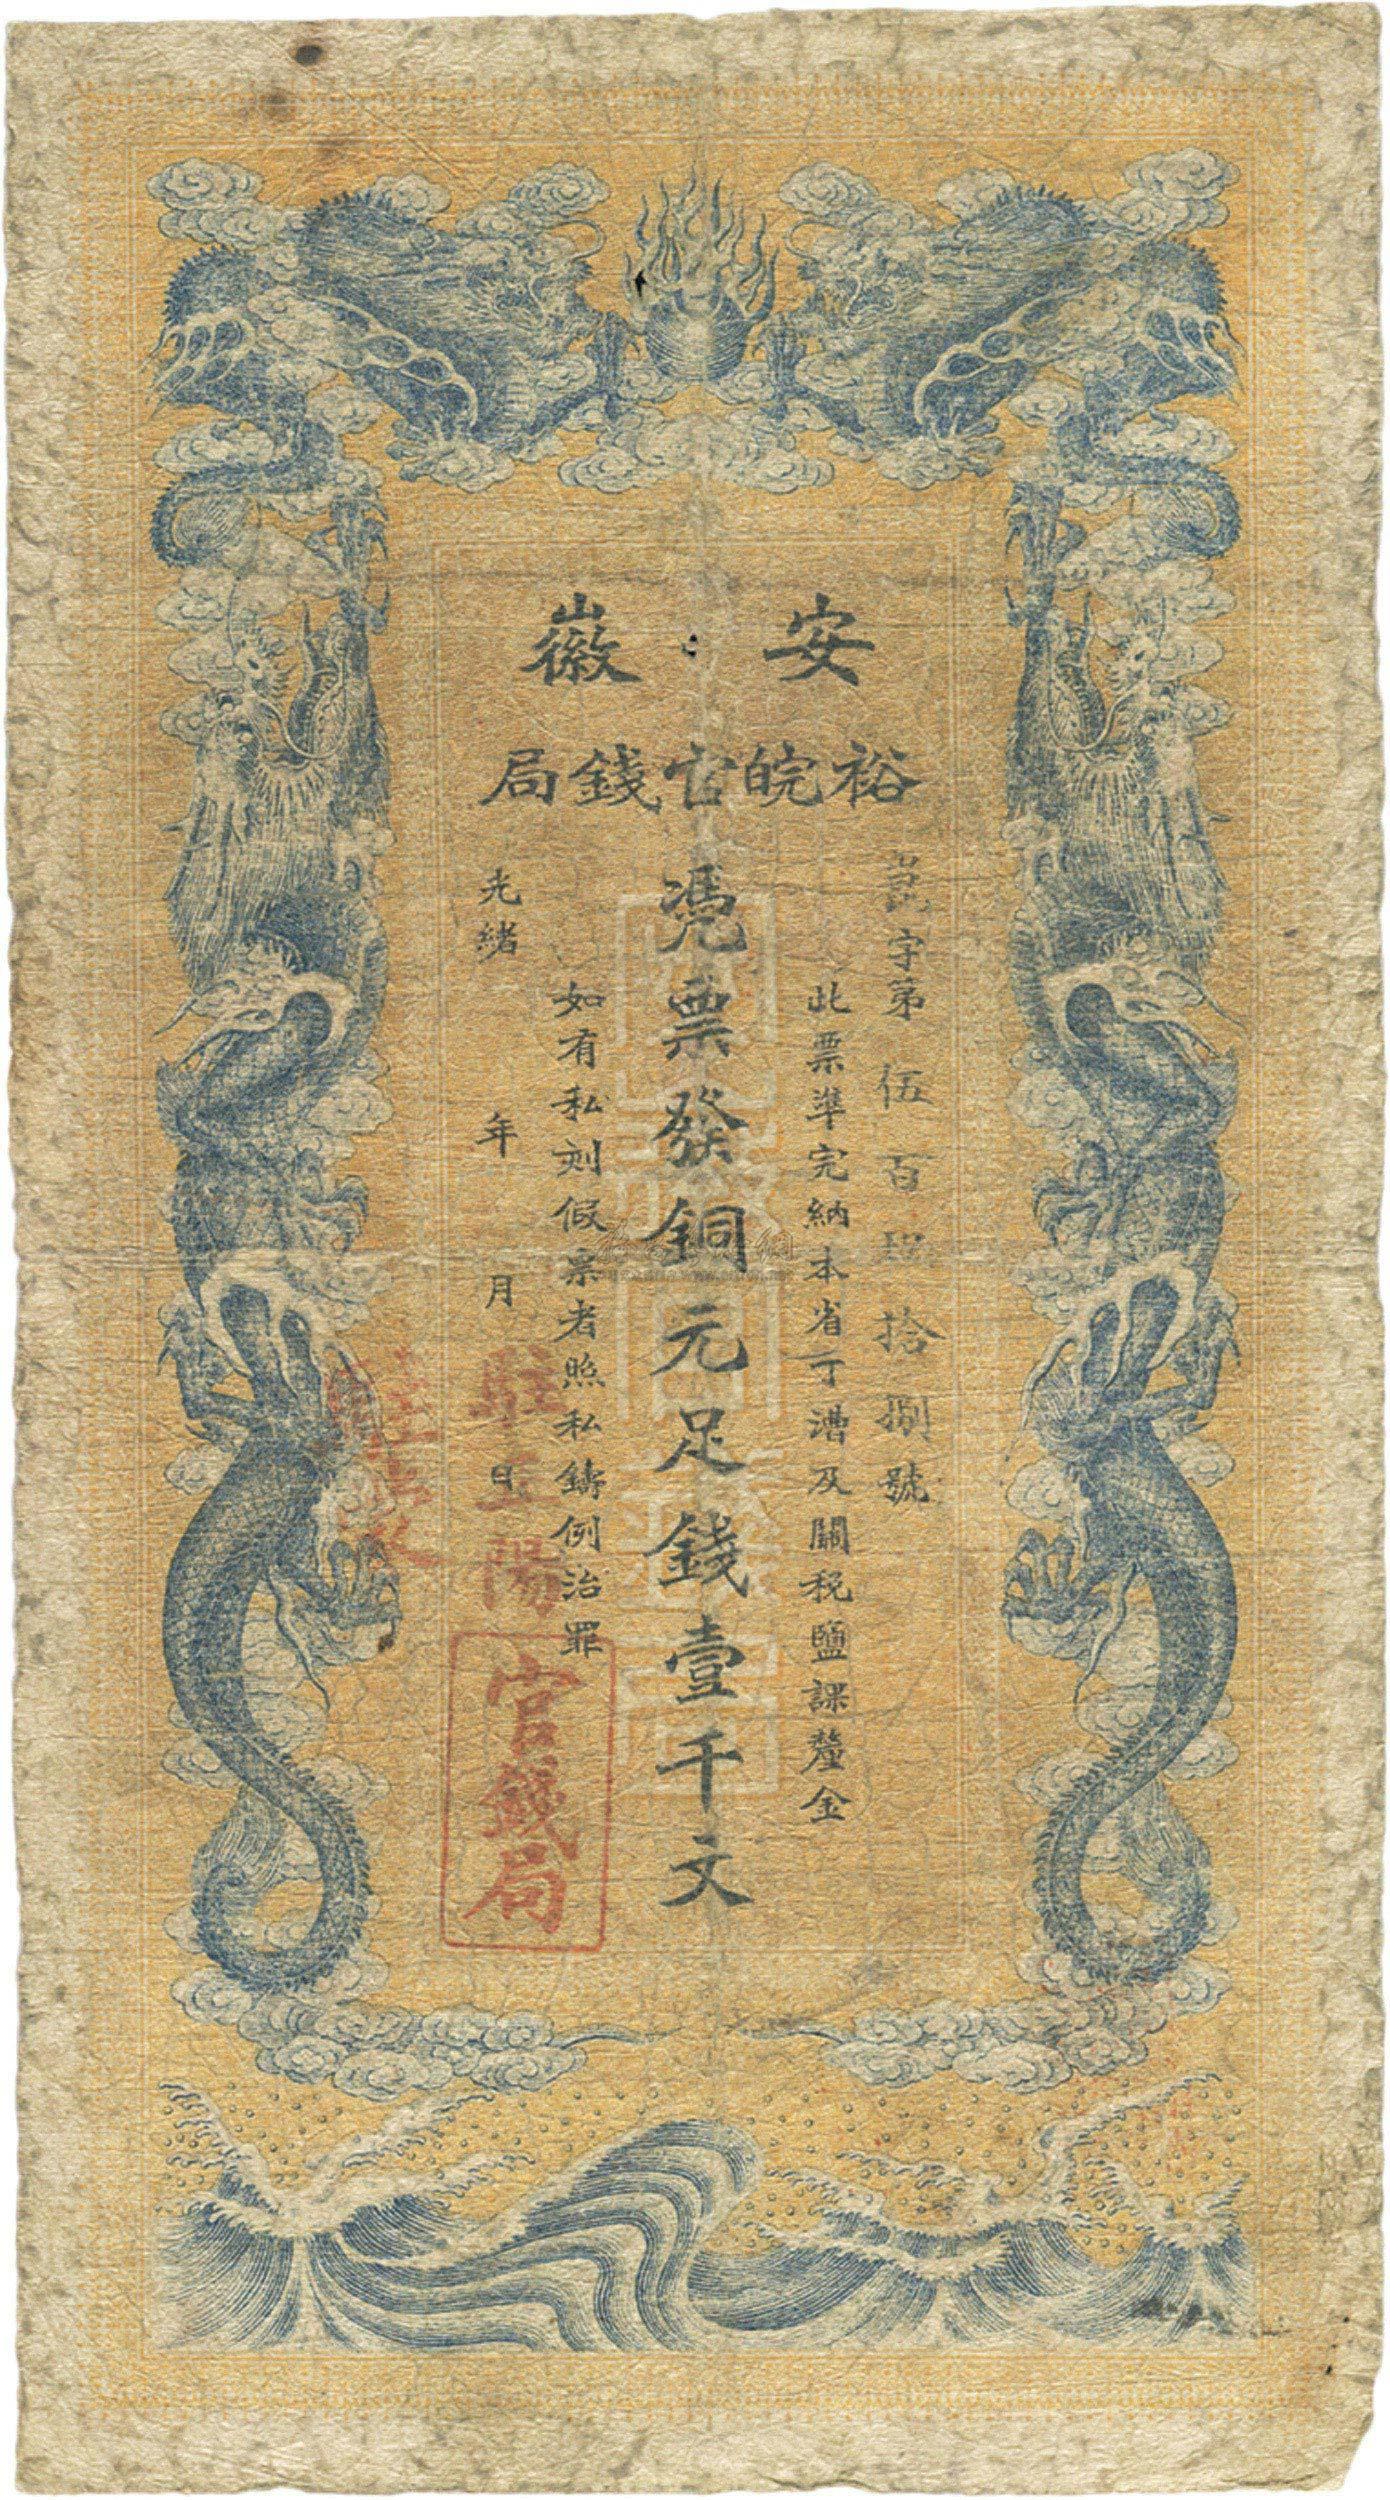 安徽
裕皖官錢局
崑字第伍百肆拾捌號
此票準完納本省丁漕及關税鹽課釐金
憑票發銅元足錢壹千文
如有私刻假票者照私鑄例治罪
光緒 年 月 日
駐正陽
官錢局